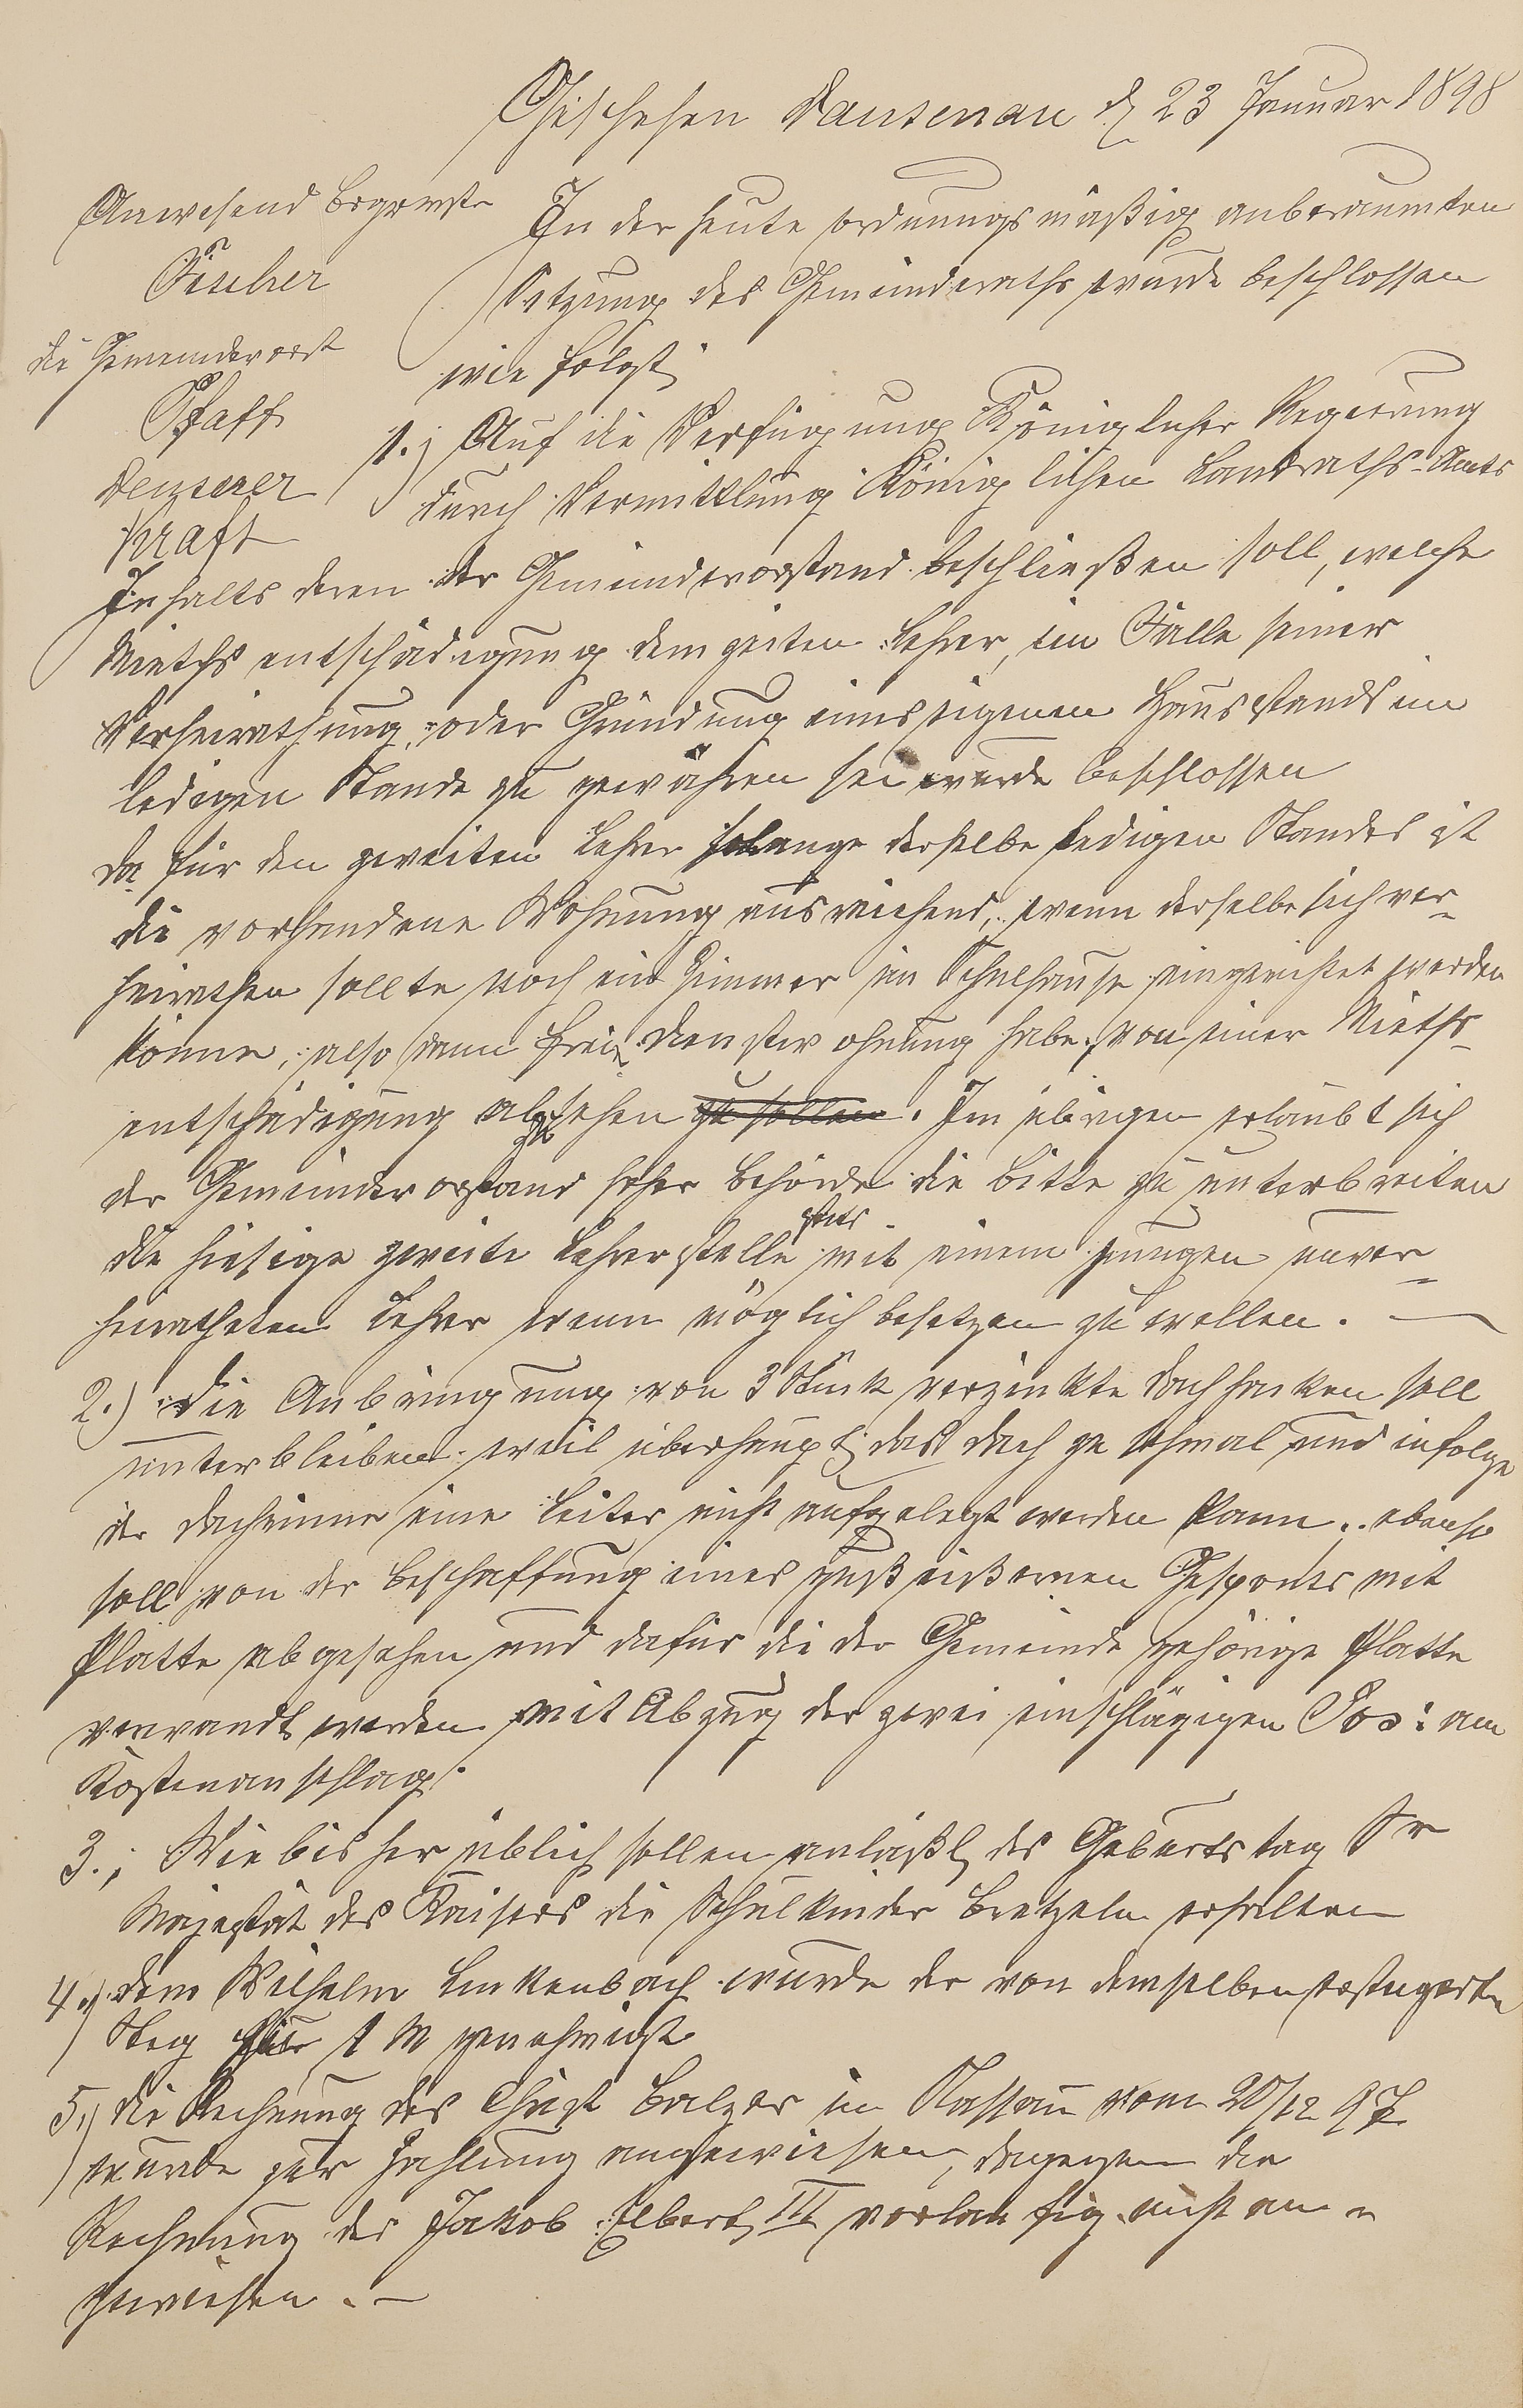 Geschehen Dausenau d 23 Januar 1898
Anwesend Bürgermstr
Fischer
die Gemeindevorst
Pfaff
Denserer
Kraft
In der heute ordnungsmäßig anberaumten
Sitzung des Gemeinderaths wurde beschlossen
wie folgt
1.) Auf die Verfügung Königlicher Regierung
durch Vermittlung Königlichen Landraths-Amts
Inhalts deren der Gemeindevorstand beschließen soll, welche
Mieths entschädigung dem zeiten Lehrer, im Falle seiner
Verheirathung, oder Gründung eines eigenen Hausstands im
ledigen Stande zu gewähren sei wurde beschlossen
da für den zweiten Lehrer solange derselbe ledigen Standes ist
die vorhandene Wohnung ausreichend, wenn derselbe sich ver-
heirathen sollte noch ein Zimmer im Schulhause eingerichtet werden
könne, also dann freie Dienstwohnung habe, von einer Mieths-
entschädigung abzusehen zu sollen. Im übrigen erlaubt sich
der Gemeindevorstand hoher Behörde die Bitte zu unterbreiten
die hiesige zweite Lehrerstelle stets mit einem jungen unver-
heiratheten Lehrer wenn möglich besetzen zu wollen. —
2.) Die Anbringung von 3 Stück verzinkte Dachhaken soll
unterbleiben weil überhaupt das Dach zu schmal und infolge
der Dachrinne eine Leiter nicht aufgelegt werden kann.. ebenso
soll von der Beschaffung eines gußeißernen Gesponts mit
Platte abgesehen und dafür die der Gemeinde gehörige Platte
verwandt werden mit Abzug der zwei einschlägigen Pos: am
Kostenanschlag.
3.; Wie bisher üblich sollen anläßl des Geburtstag Sr
Majestät des Kaisers die Schulkinder Bretzeln erhalten
4.) Dem Wilhelm Linkenbach wurde der von demselben
Steg für 1 M genehmigt
5.) die Rechnung des Christ Balzer in Nassau vom 20/12 97
wurde zur Zahlung angewiesen, dagegen die
Rechnung des Jakob Elbert III vorläufig nicht an-
gewiesen. —